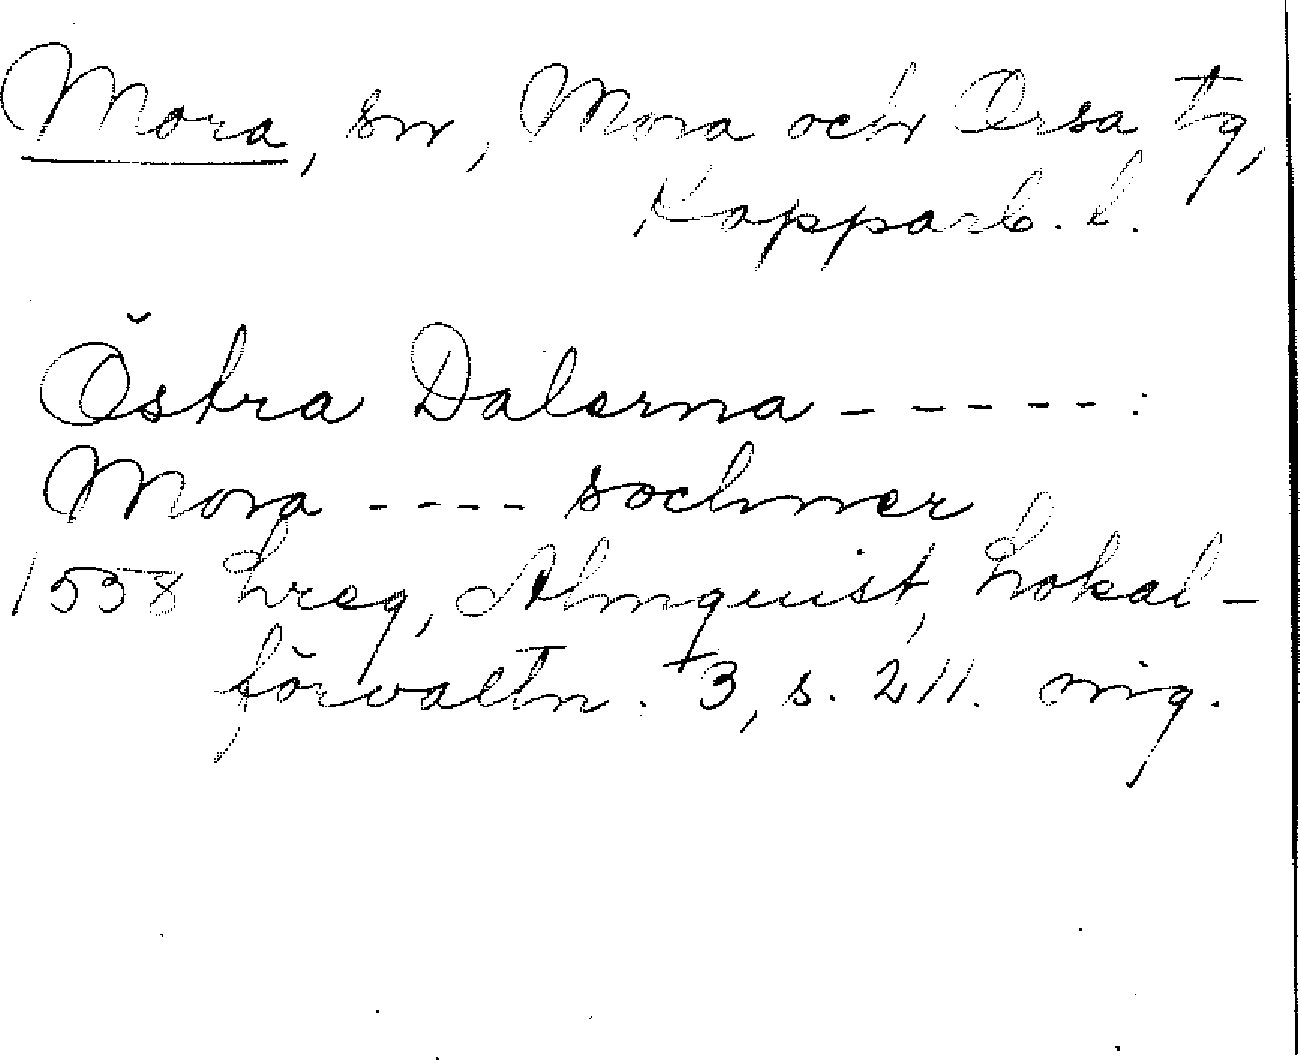 Mora, sn, Mora och Orsa tg,
Kopparb. l.
Östra Dalarna - - - - - :
Mora - - - - sochner
1538 Lreg, Almquist, Lokal-
förvaltn. 3, s. 211. mg.